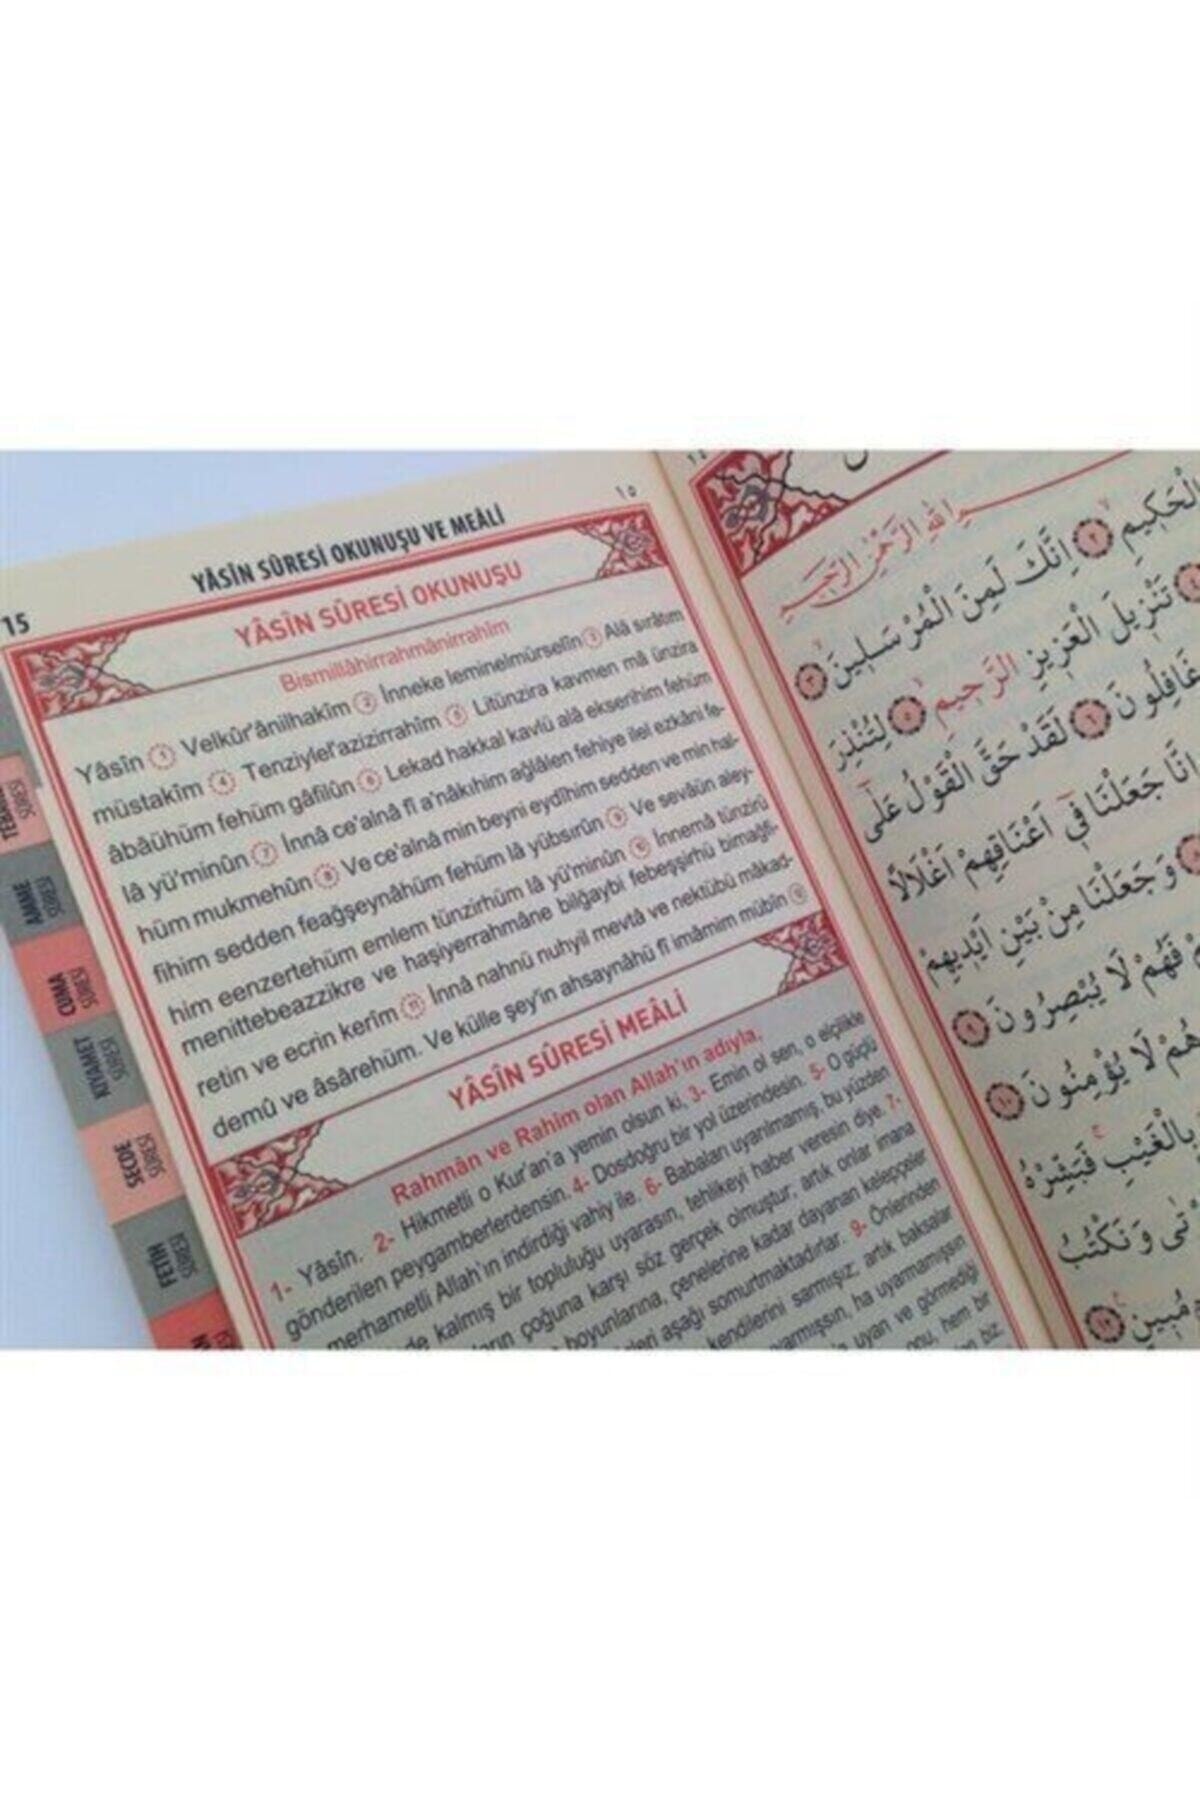 15
١٥
YÂSÎN SÛRESİ OKUNUŞU VE MEÂLİ
YÂSÎN SÛRESİ OKUNUŞU
Bismillâhirrahmânirrahîm
Yâsîn ١ Velkûr'ânilhakîm ٢ İnneke leminelmürselîn ٣ Alâ sırâtım
müstakîm ٤ Tenziylel'azizirrahîm ٥ Litünzira kavmen mâ ünzira
âbâühüm fehüm gâfilûn ٦ Lekad hakkal kavlü alâ ekserihim fehüm
lâ yü'minûn ٧ İnnâ ce'alnâ fî a'nâkıhim ağlâlen fehiye ilel ezkâni fe-
hüm mukmehûn ٨ Ve ce'alnâ min beyni eydîhim sedden ve min hal-
fihim sedden feağşeynâhüm fehüm lâ yübsırûn ٩ Ve sevâün aley-
him eenzertehüm emlem tünzirhüm lâ yü'minûn ١٠ İnnemâ tünzirü
menittebeazzikre ve haşiyerrahmâne bilğaybi febeşşirhü bimağfi-
retin ve ecrin kerîm ١١ İnnâ nahnü nuhyil mevtâ ve nektübü mâkad-
demû ve âsârehüm. Ve külle şey'in ahsaynâhü fî imâmim mübîn ١٢
YÂSÎN SÛRESİ MEÂLİ
Rahmân ve Rahîm olan Allah'ın adıyla,
1- Yâsîn. 2- Hikmetli o Kur'an'a yemin olsun ki, 3- Emin ol sen, o elçilikle
gönderilen peygamberlerdensin. 4- Dosdoğru bir yol üzerindesin. 5- O güçlü
merhametli Allah'ın indirdiği vahiy ile. 6- Babaları uyarılmamış, bu yüzden
de kalmış bir topluluğu uyarasın, tehlikeyi haber veresin diye. 7-
çoğuna karşı söz gerçek olmuştur; artık onlar imana
boyunlarına, çenelerine kadar dayanan kelepçeler
aşağı somurtmaktadırlar. 9- Önlerinden
kendilerini sarmışız; artık baksalar
uyarmışsın, ha uyarmamışsın
uyan ve görmediği
onu, hem bir
biz
SÛRESİ
AMME
SÛRESİ
CUMA
SÛRESİ
KIYAMET
SÛRESİ
SECDE
SÛRESİ
FETİH
SÛRESİ
١٤
بِسْمِ اللّٰهِ الرَّحْمٰنِ الرَّحِيمِ
الْحَكِيمِ ٢ اِنَّكَ لَمِنَ الْمُرْسَلِينَ ٣
تَنْزِيلَ الْعَزِيزِ الرَّحِيمِ ٥ لِتُنْذِرَ
غَافِلُونَ ٦ لَقَدْ حَقَّ الْقَوْلُ عَلٰى
اِنَّا جَعَلْنَا فِٓي اَعْنَاقِهِمْ اَغْلَالًا
٨ وَجَعَلْنَا مِنْ بَيْنِ اَيْدِيهِمْ
فَهُمْ لَا يُبْصِرُونَ ٩
هُمْ لَا يُؤْمِنُونَ ١٠
بِالْغَيْبِ فَبَشِّرْهُ
وَنَكْتُبُ
مُبِينٍ ١٢